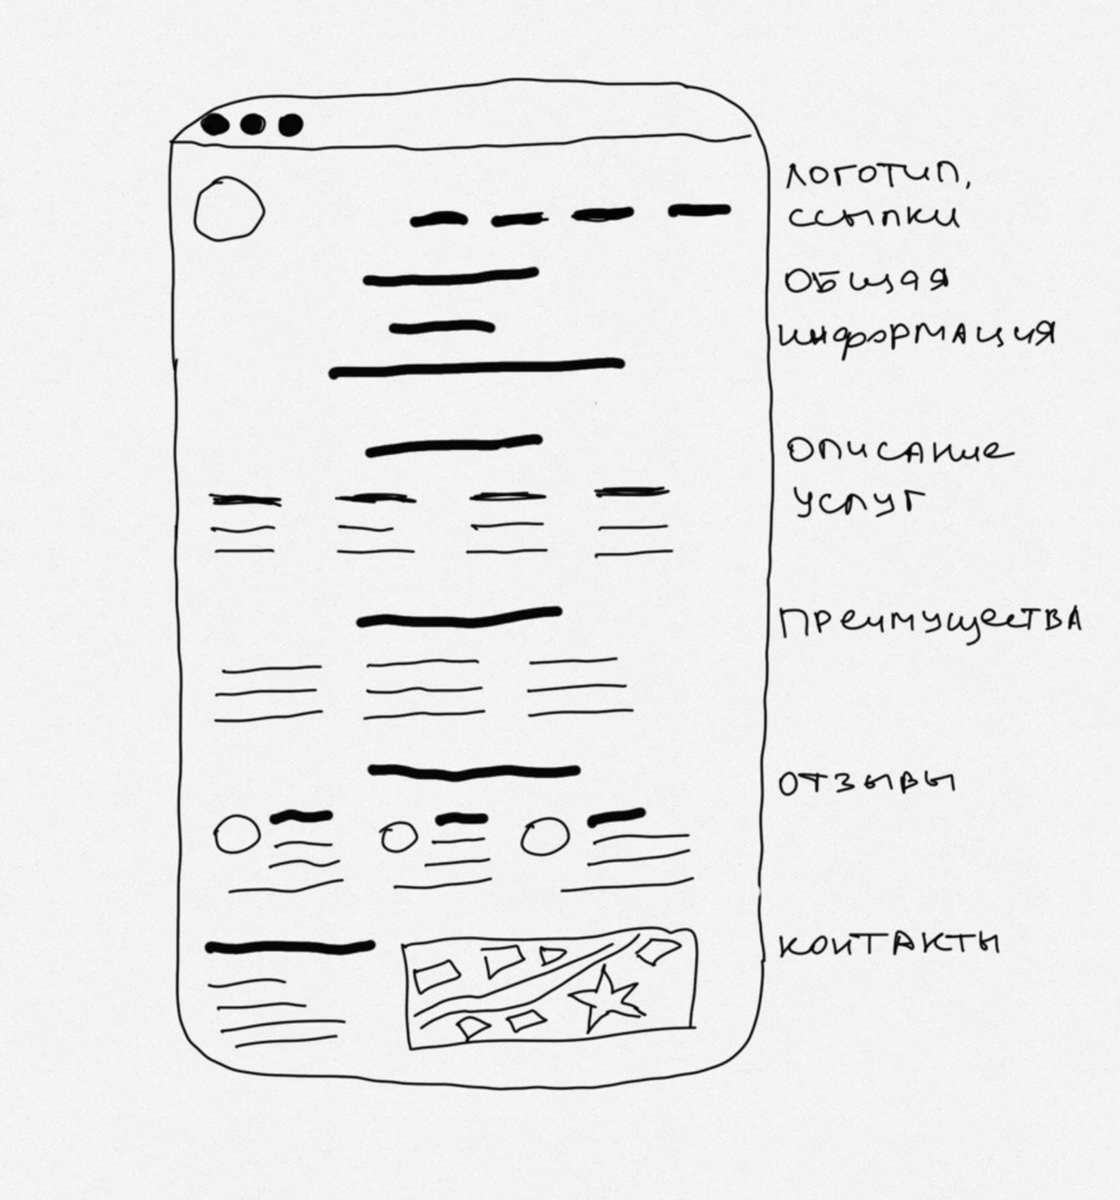 ЛОГОТИП,
ССЫЛКИ
ОБЩАЯ
ИНФОРМАЦИЯ
ОПИСАНИЕ
УСЛУГ
ПРЕИМУЩЕСТВА
ОТЗЫВЫ
КОНТАКТЫ